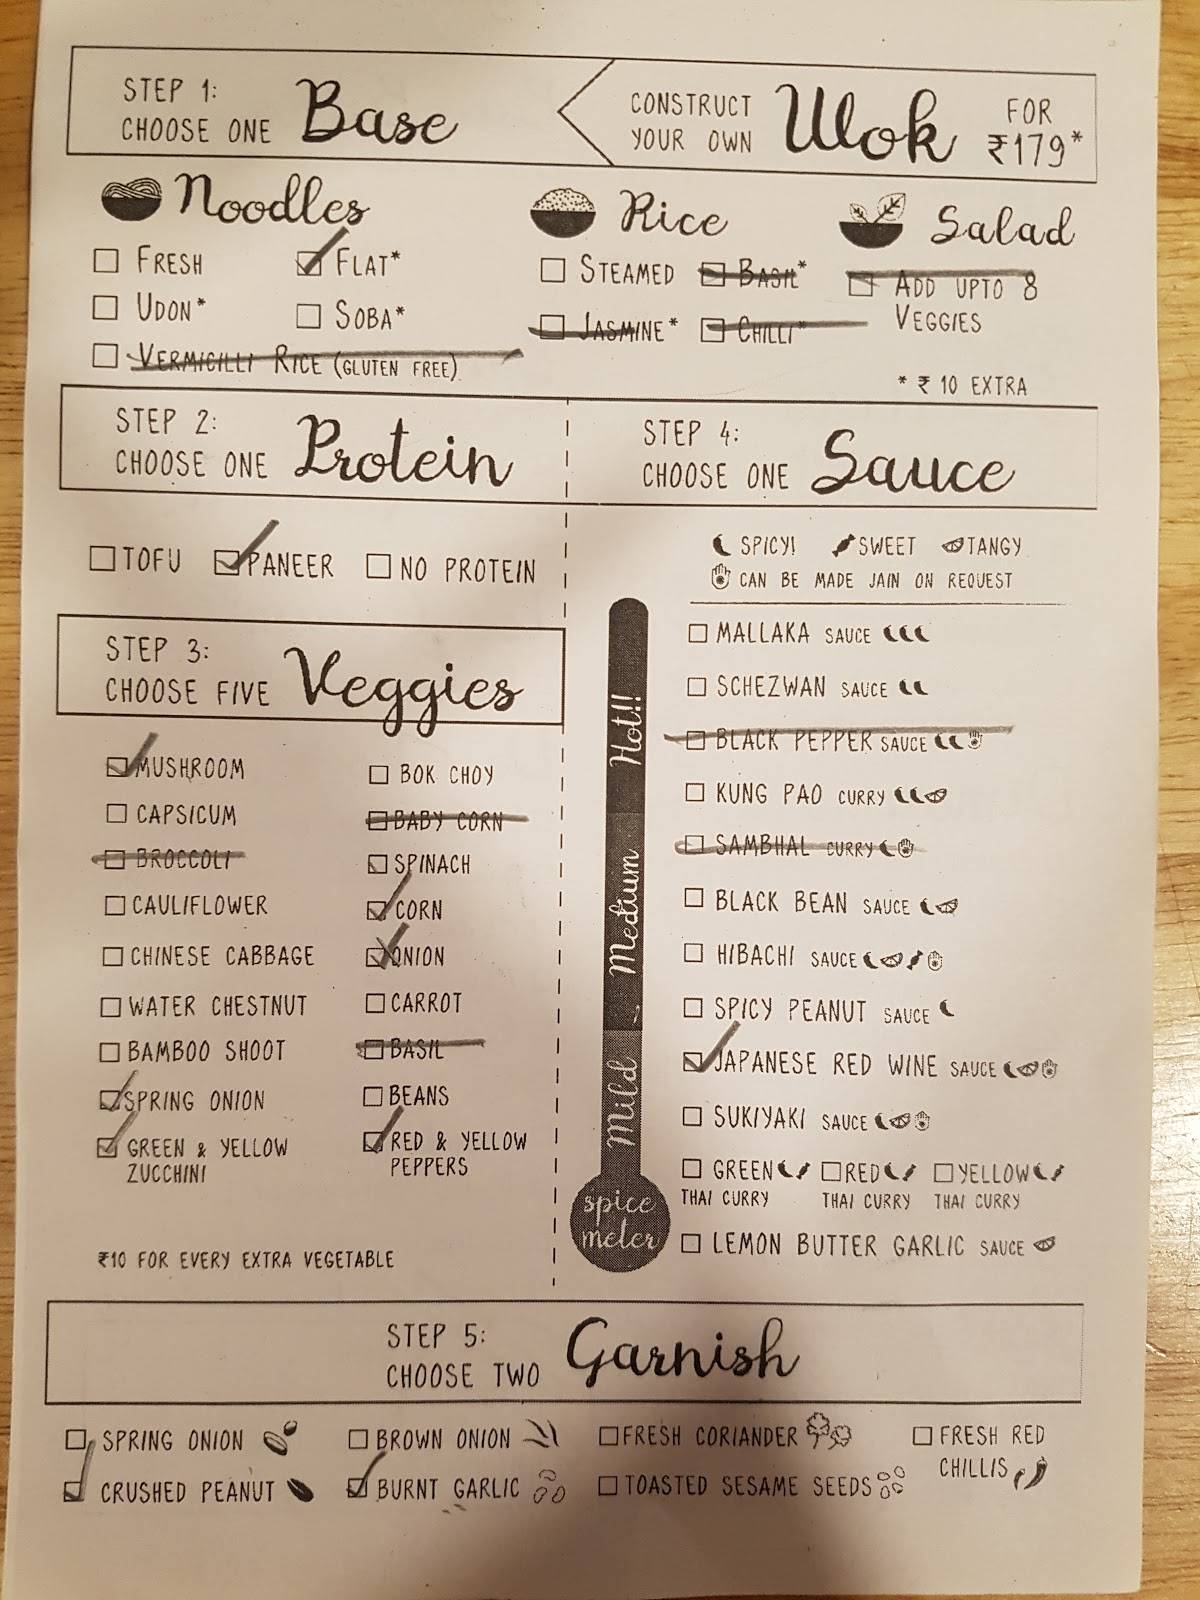 STEP 1:
CHOOSE ONE Base
CONSTRUCT
YOUR OWN Wok FOR
₹179*
Noodles
FRESH
FLAT*
UDON*
SOBA*
VERMICILLI RICE (GLUTEN FREE)
Rice
STEAMED
BASIL*
JASMINE*
CHILLI*
Salad
ADD UPTO 8
VEGGIES
* ₹ 10 EXTRA
STEP 2:
CHOOSE ONE Protein
TOFU PANEER NO PROTEIN
STEP 3:
CHOOSE FIVE Veggies
MUSHROOM
CAPSICUM
BROCCOLI
CAULIFLOWER
CHINESE CABBAGE
WATER CHESTNUT
BAMBOO SHOOT
SPRING ONION
GREEN & YELLOW
ZUCCHINI
BOK CHOY
BABY CORN
SPINACH
CORN
ONION
CARROT
BASIL
BEANS
RED & YELLOW
PEPPERS
₹10 FOR EVERY EXTRA VEGETABLE
STEP 4:
CHOOSE ONE Sauce
SPICY! SWEET TANGY
CAN BE MADE JAIN ON REQUEST
Hot!!
Medium
Mild
spice
meter
MALLAKA SAUCE
SCHEZWAN SAUCE
BLACK PEPPER SAUCE
KUNG PAO CURRY
SAMBHAL CURRY
BLACK BEAN SAUCE
HIBACHI SAUCE
SPICY PEANUT SAUCE
JAPANESE RED WINE SAUCE
SUKIYAKI SAUCE
GREEN RED YELLOW
THAI CURRY THAI CURRY THAI CURRY
LEMON BUTTER GARLIC SAUCE
STEP 5:
CHOOSE TWO Garnish
SPRING ONION BROWN ONION FRESH CORIANDER FRESH RED
CHILLIS
CRUSHED PEANUT BURNT GARLIC TOASTED SESAME SEEDS